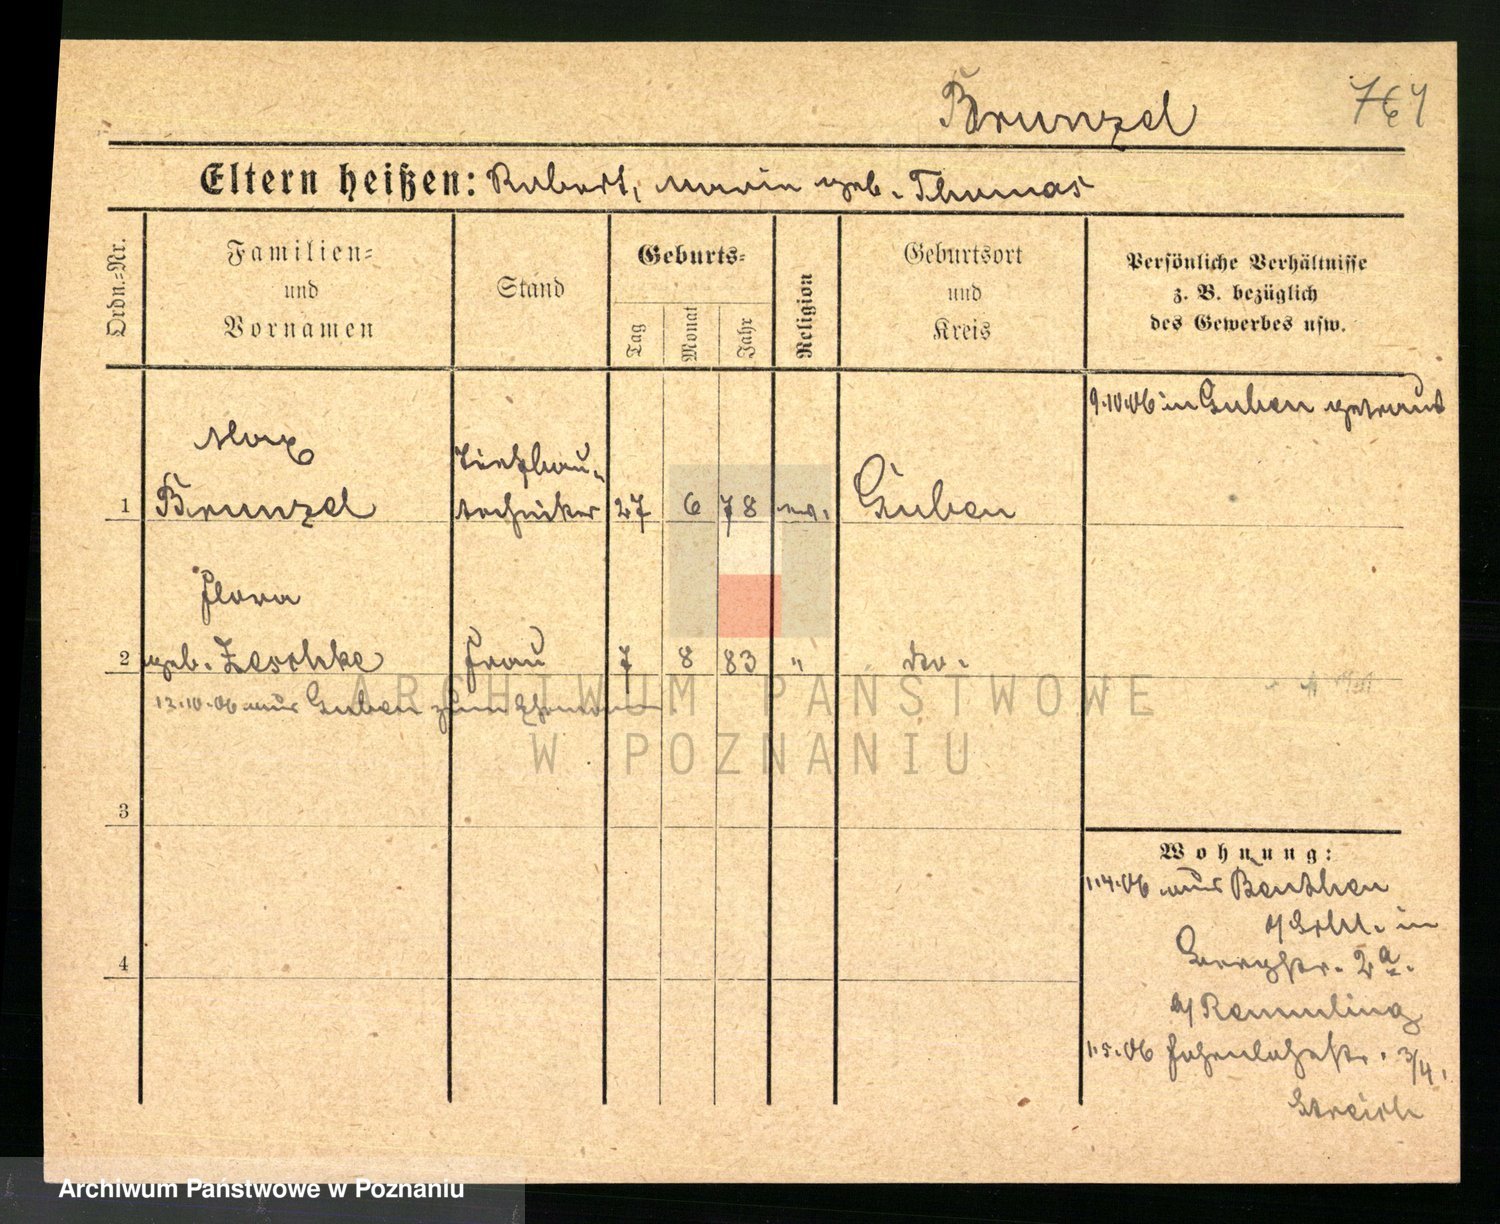 Brunzel
764
Eltern heißen: Robert, Marie geb. Thomas
Ordn.-Nr.
Familien-
und
Vornamen
Stand
Geburts-
Tag
Monat
Jahr
Religion
Geburtsort
und
Kreis
Persönliche Verhältnisse
z. B. bezüglich
des Gewerbes usw.
9.10.06 in Guben getraut
Max
1 Brunzel
Tiefbau-
techniker
27 6 78 ev. Guben
Flora
2 geb. Zeschke Frau 7 8 83 " do.
13.10.06 aus Guben zum Ehemann
3
4
Wohnung:
1.4.06 aus Beuthen
O/Schl. in
Georgstr. 2a.
b/ Remmling
1.5.06 Hohenlohestr. 3/4.
Streich
ARCHIWUM PAŃSTWOWE
W POZNANIU
Archiwum Państwowe w Poznaniu